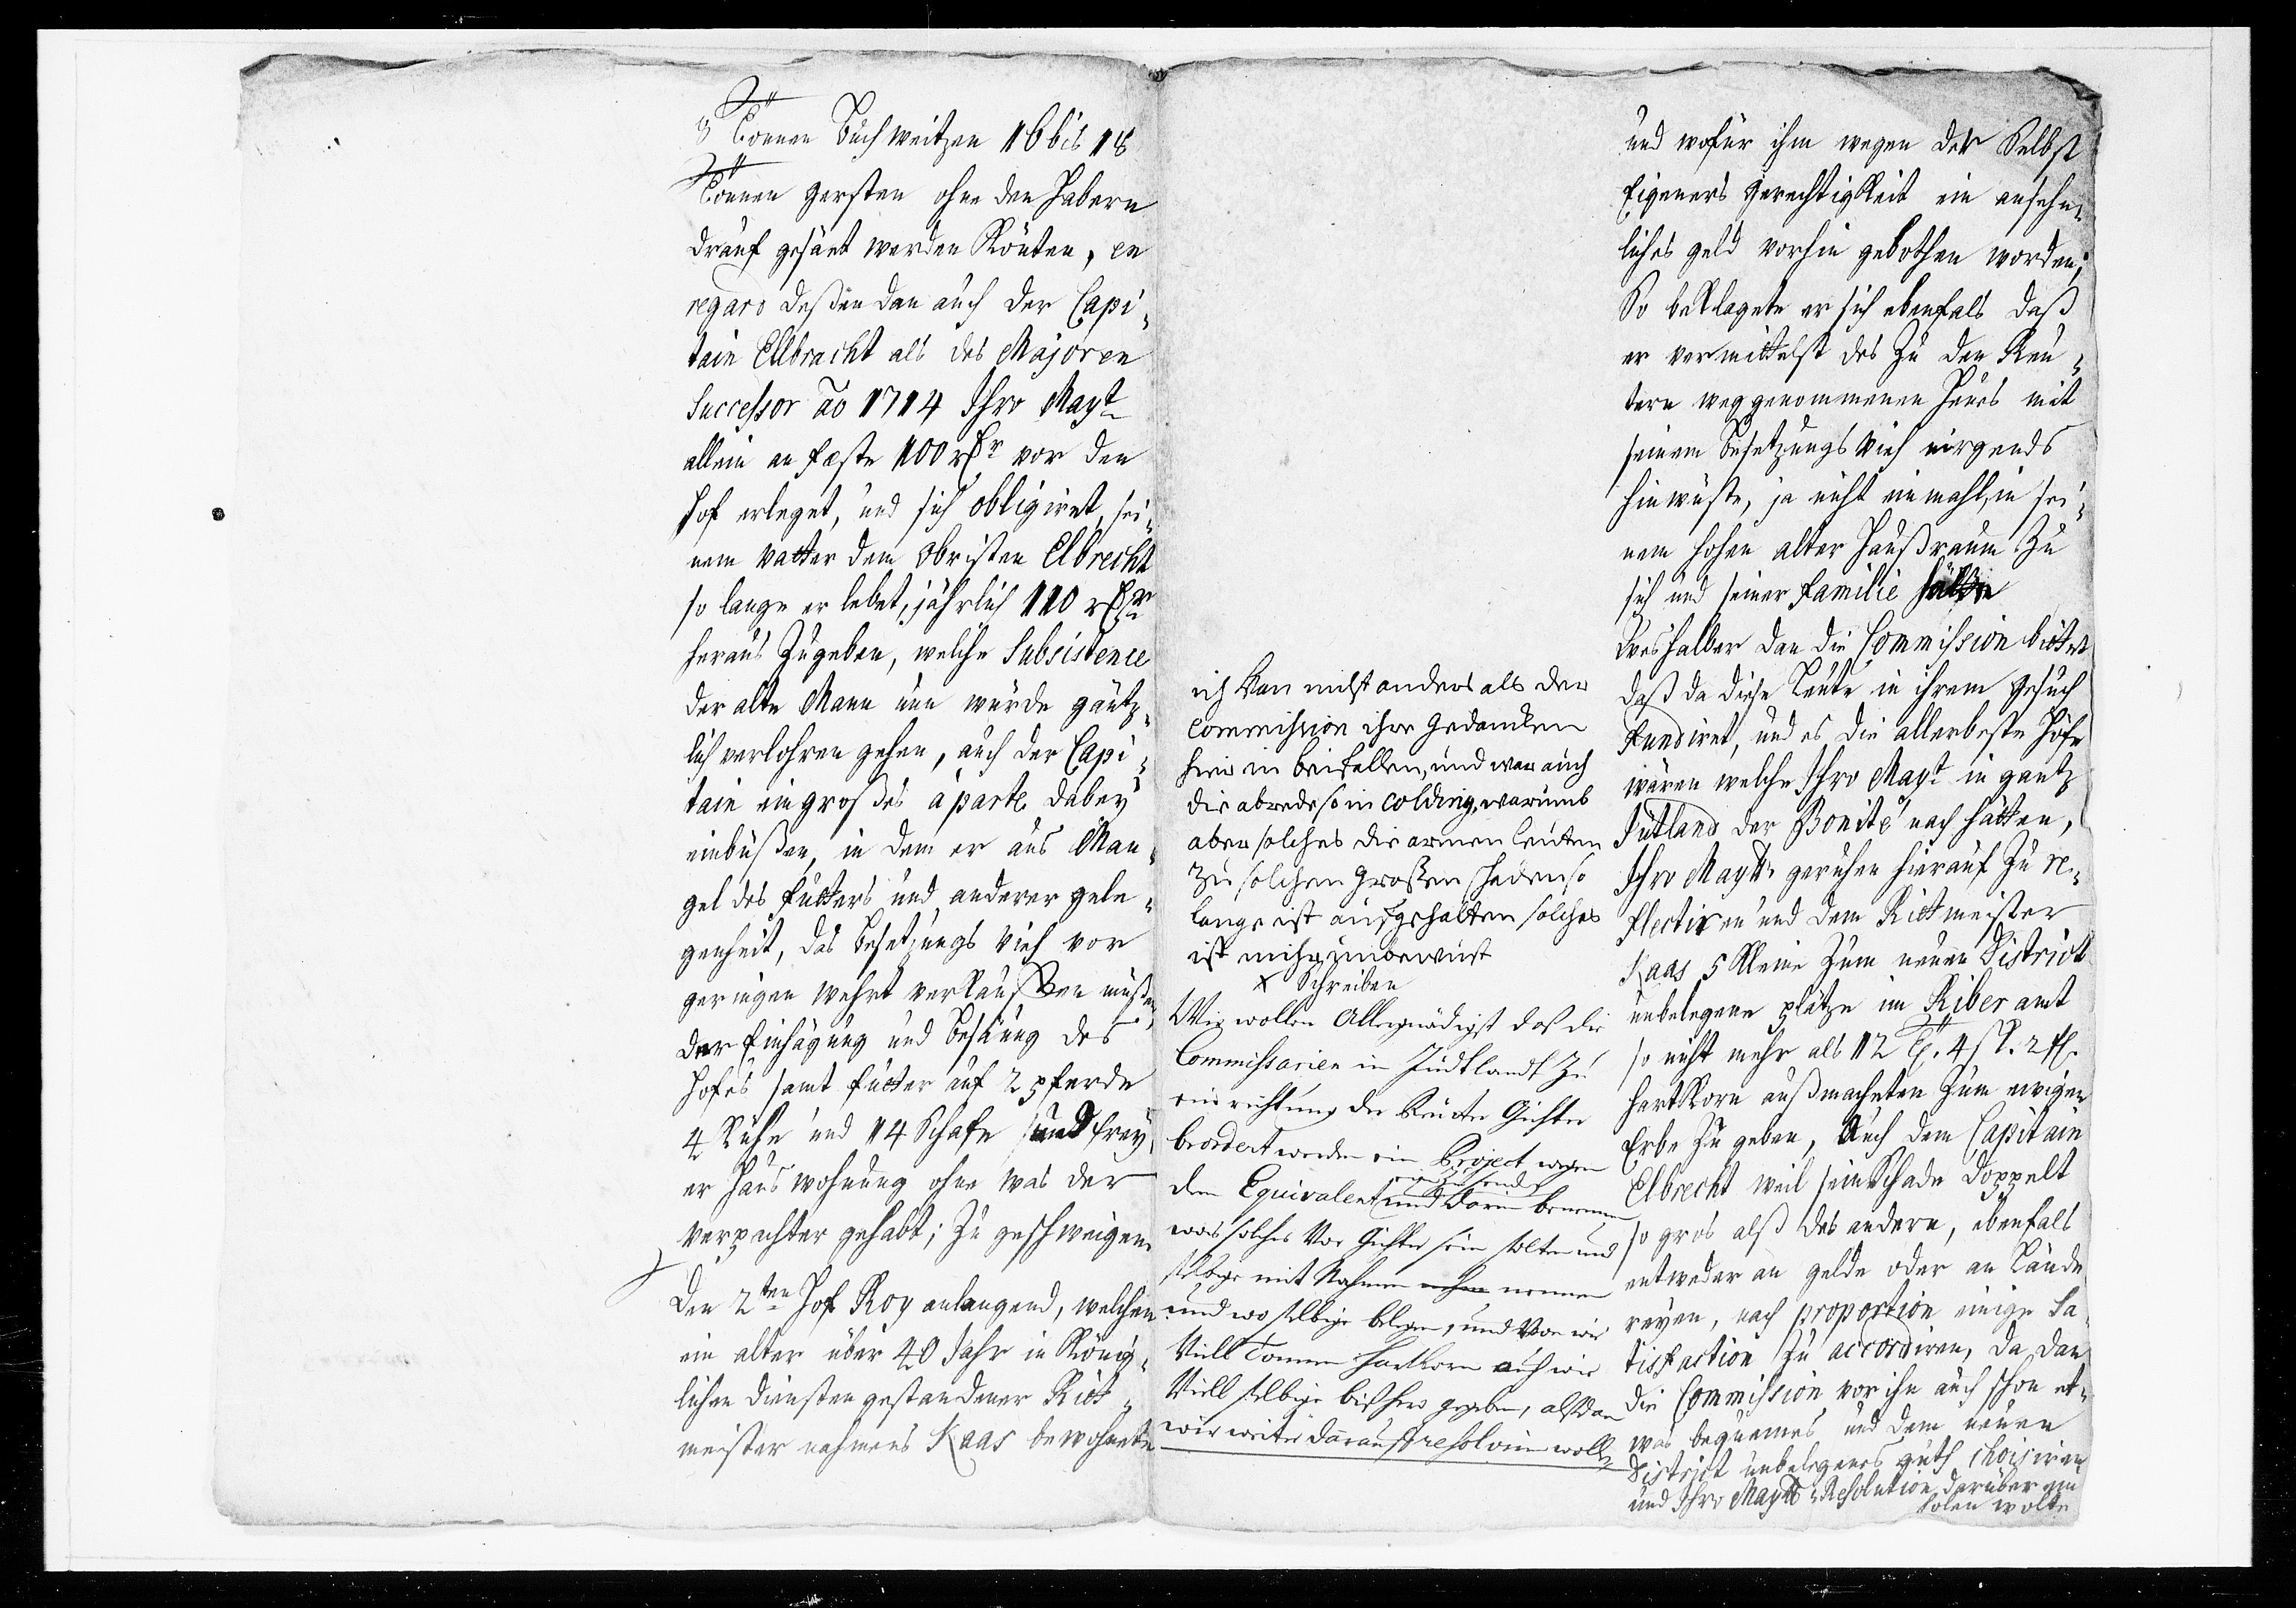 8 Tönnen Buchweitzen 16 bis 18
Tönnen gersten ohne den Habern
drauf gesäet werden Könten, en
regard deßen dan auch der Capi-
tain Ellbracht als des Majoren
Successor ao 1714 Ihro Mayt
allein an fæste 100 rthr vor den
Hof erleget, und sich obligiret, sei-
nem vatter dem Obristen Elbrecht
so lange er lebet, jährlich 110 rthr
heraus Zugeben, welche Subsistence
der alte Mann nun würde gäntz-
lich verlohren gehen, auch der Capi-
tain ein großes àparte dabey
einbüßen, in dem er aus Man-
gel des futters und anderer gele-
genheit, das besetzungs Vieh vor
geringen wehrt verkauffen müßen,
der Einhägung und besäung des
Hofes samt futter auf 2 pferde
4 Kühe und 14 Schafe und frey-
er Haus wohnung ohne was der
verpachter gehabt; Zu geschweigen
Den 2ten Hof Roy anlangend, welchen
ein alter über 40 Jahr in König-
lichen diensten gestandener Rit-
meister nahmens Kaas bewohnete
ich Kan nicht anders als der
commission ihre gedancken
hier in beifallen, und war auch
die abrede so in colding, warumb
aber solches die armen leuten
zu solchen großen schaden so
lange ist aufgehalten solches
ist mihr unbewust
x Schreiben
Wir wollen Allergnädigst daß die
Commissarien in Jüdtlandt zu
einrichtung der Reuter Gühter
beordert werden ein Project wegen
einzusenden
dem Equivalent und darin benennen
was solches Vor Gühter sein solten und
selbige mit Nahmen nennen
und wo selbige belegen, und Von wie
Viell Tonnen Hartkorn auch wie
Viell selbige bißhero gegeben, alsdan
wir weiter darauf resolviren wollen
und wofür ihm wegen der Selbst
Eigeners gerechtigkeit ein ansehn-
liches geld vorhin gebothen worden;
So beklagete er sich ebenfals daß
er vermittelst des Zu den Reu-
tern weggenommenen Hauses mit
seinem besetzungs Vieh nirgends
hinwüste, ja nicht ein mahl, in sei-
nem hohen alter Haußraum Zu
sich und seiner Familie hätte
Weshalber dan die Commission bittet
daß da diese Leute in ihrem gesuch
fundiret, und es die allerbeste Höfe
wären welche Ihro Mayt in gantz
Jütland der Bonité nach hätten,
Ihro Maytt geruhen hierauf Zu re-
flectiren und dem Ritmeister
Kaas 5 Kleine Zum neuen District
unbelegene plätze im Riber amt
so nicht mehr als 12 T. 4 s. 2 fl.
Hartkorn außmacheten Zum ewigen
Erbe Zu geben, Auch dem Capitain
Elbrecht weil sein Schade doppelt
so gros alß des andern, ebenfals
entweder an gelde oder an Lände-
reyen, nach proportion einige Sa-
tisfaction Zu accordiren, da dan
die Commission vor ihn auch schon et-
was bequemes und dem neuen
District unbelegenes guth choisiren
und Ihro Maytts Resolution darüber ein-
holen wolte